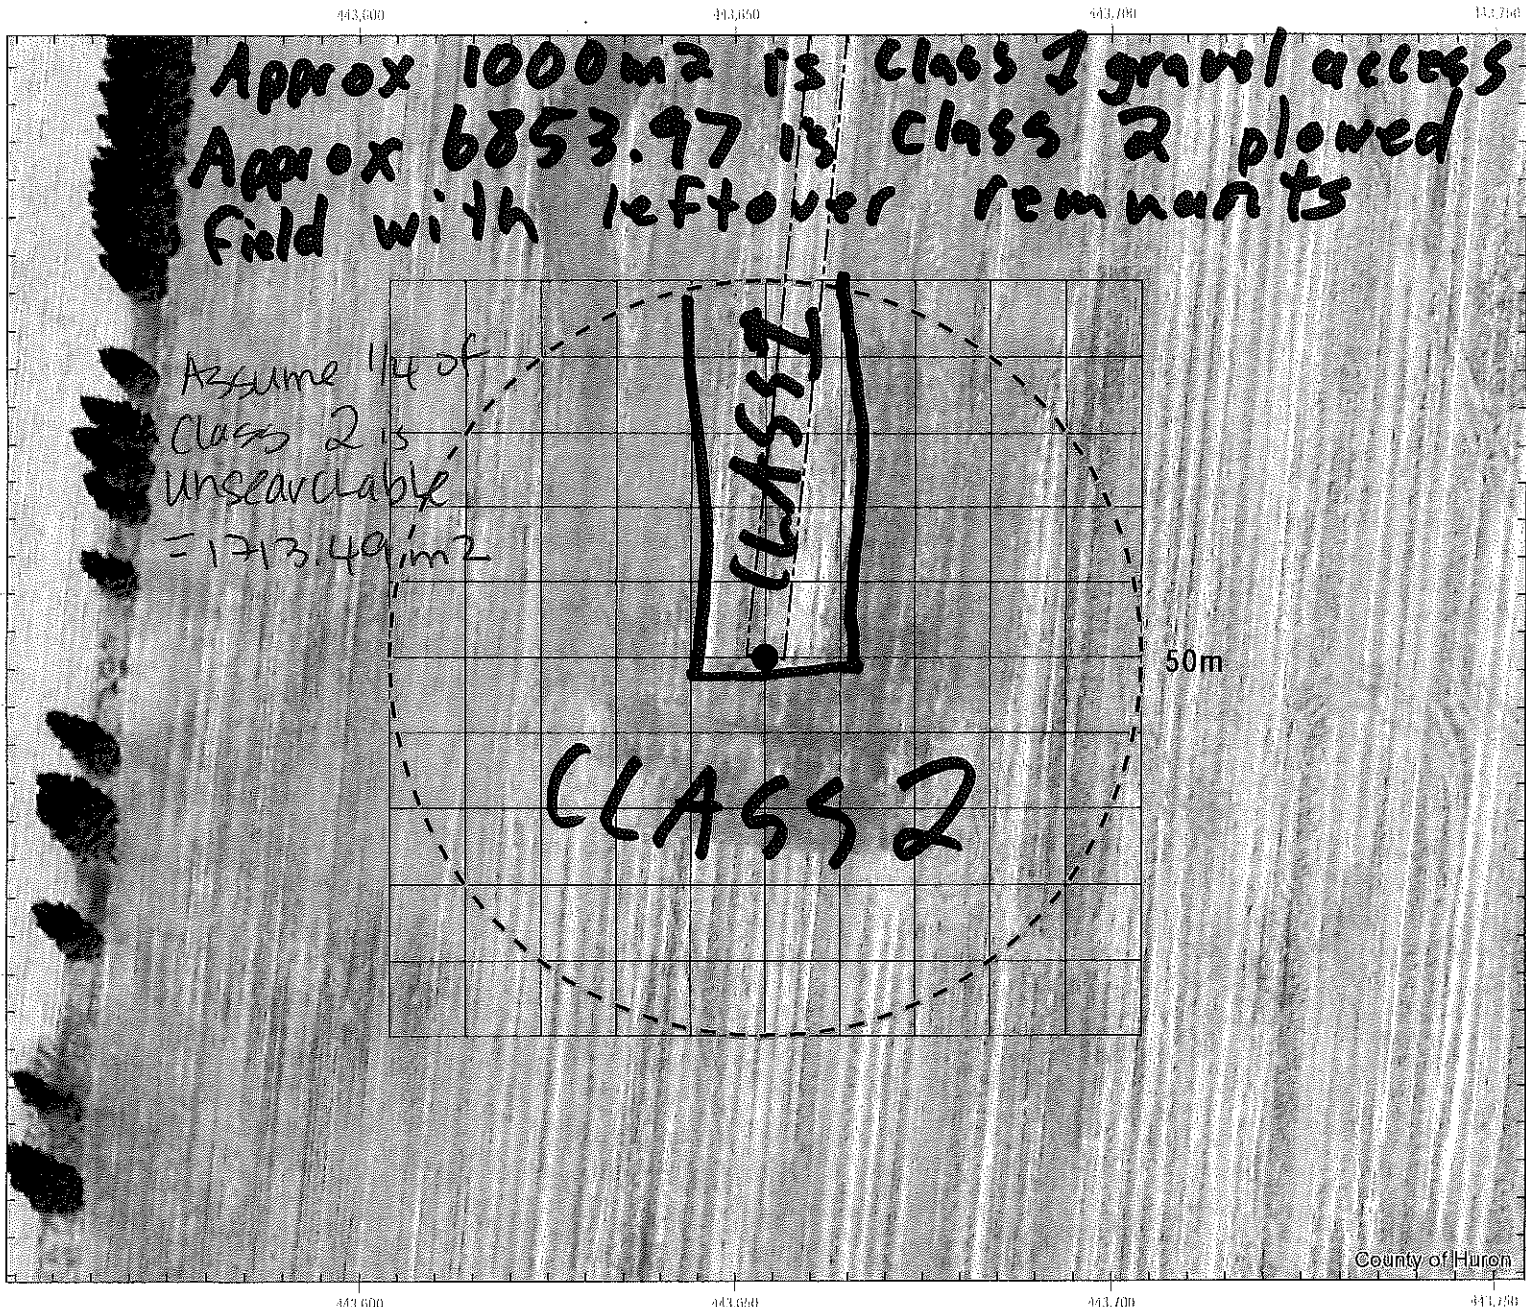 443,600 443,650 443,700 443,750
Approx 1000m2 is Class 1 gravel access
Approx 6853.97 is Class 2 plowed
field with leftover remnants
Assume 1/4 of
Class 2 is
unsearchable
=1713.49 m2
CLASS 1
50m
CLASS 2
County of Huron
443,600 443,650 443,700 443,750